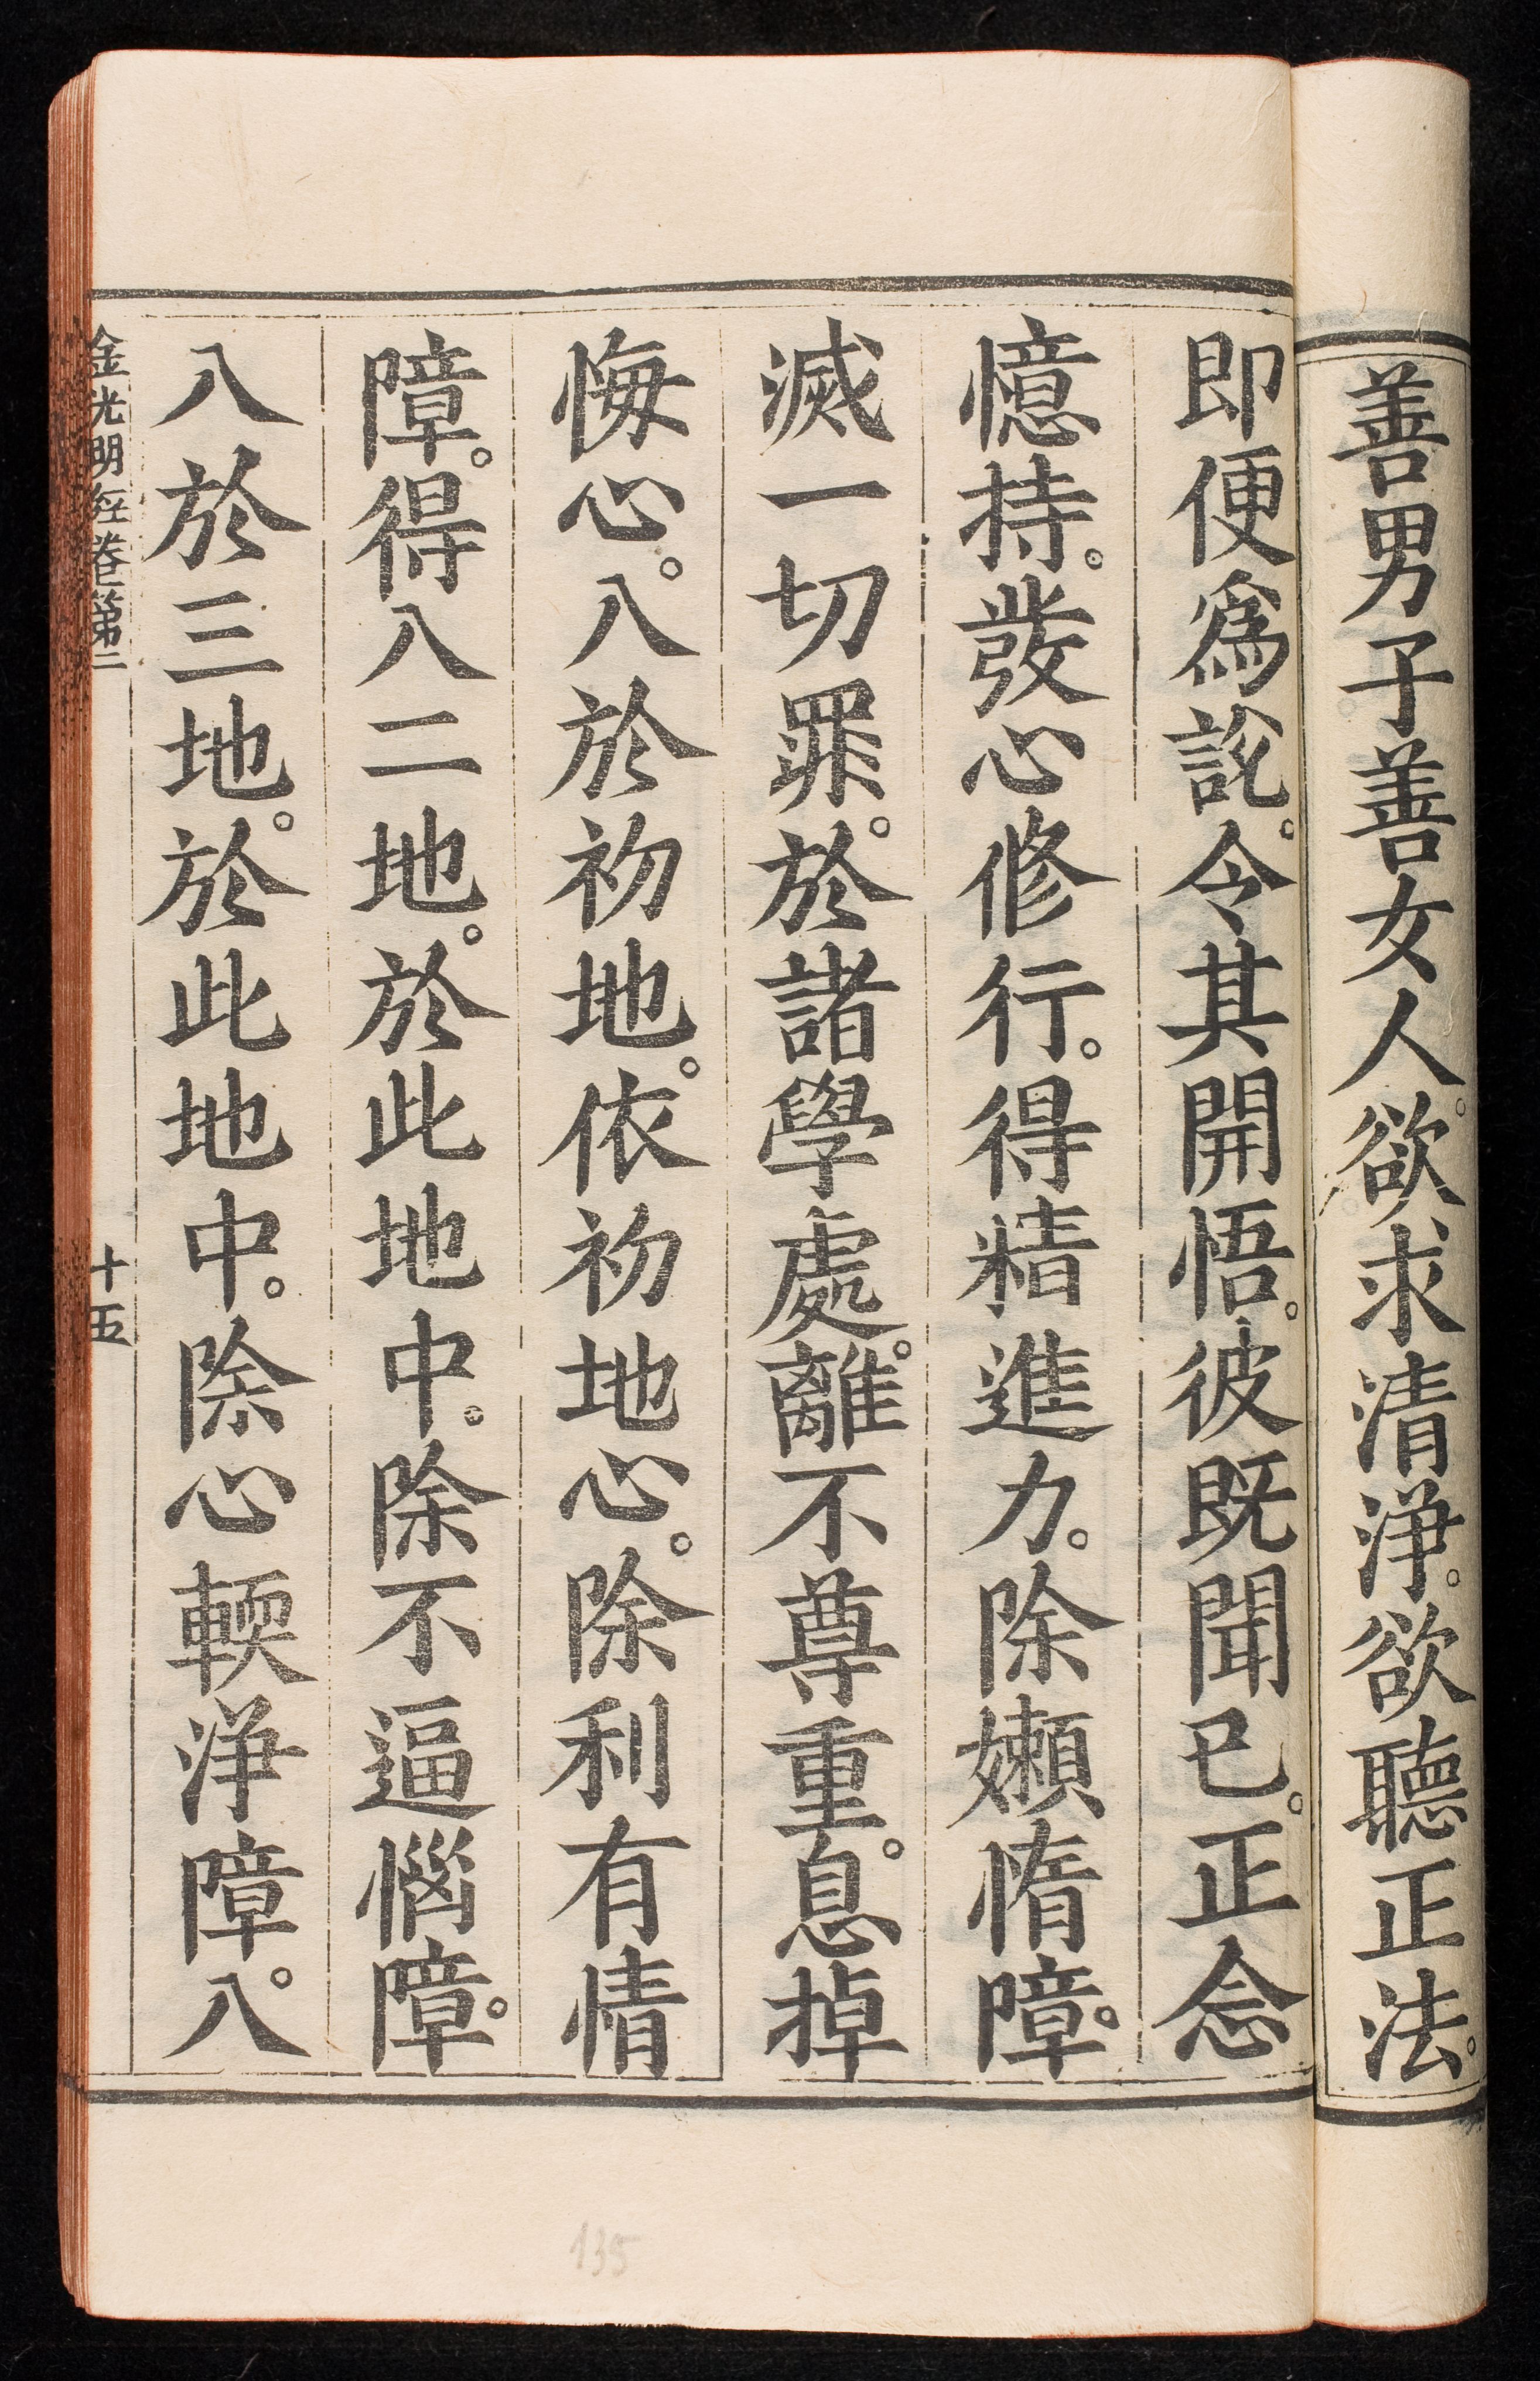 善男子善女人。欲求清淨。欲聽正法。
即便爲說。令其開悟。彼既聞已。正念
憶持。發心修行。得精進力。除嬾惰障。
滅一切罪。於諸學處。離不尊重。息掉
悔心。入於初地。依初地心。除利有情
障。得入二地。於此地中。除不逼惱障。
入於三地。於此地中。除心輭淨障。入
金光明經卷第二 十五
135